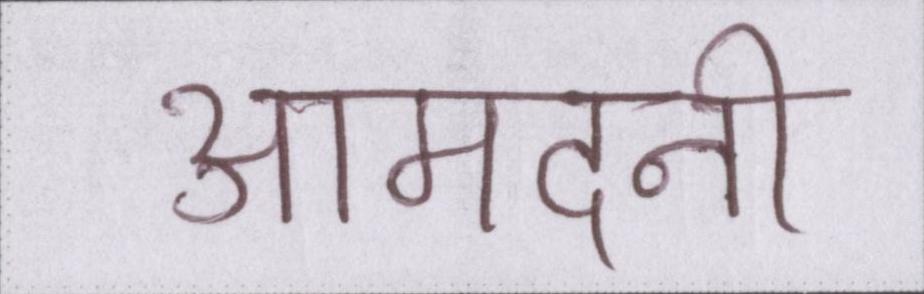 आमदनी